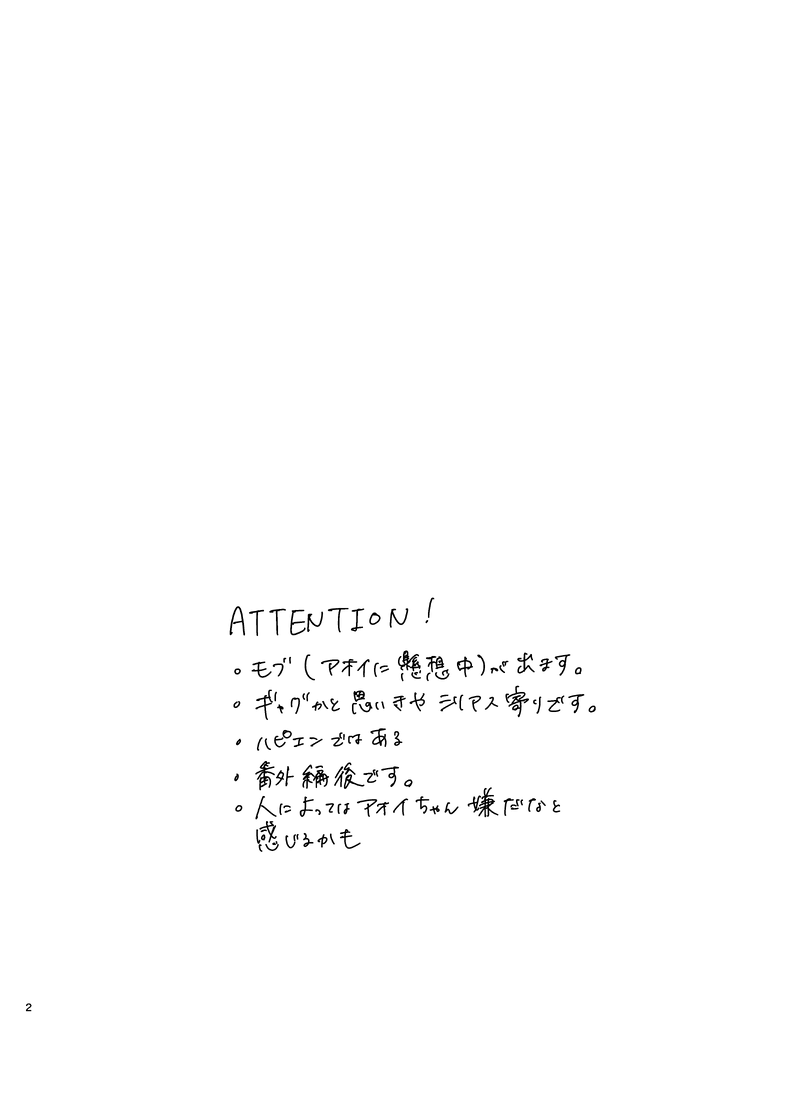 ATTENTION!
。モブ(アオイに懸想中)が出ます。
。ギャグかと思いきやシリアス寄りです。
・ハピエンではある
・番外編後です。
。人によってはアオイちゃん嫌だなと
感じるかも
2